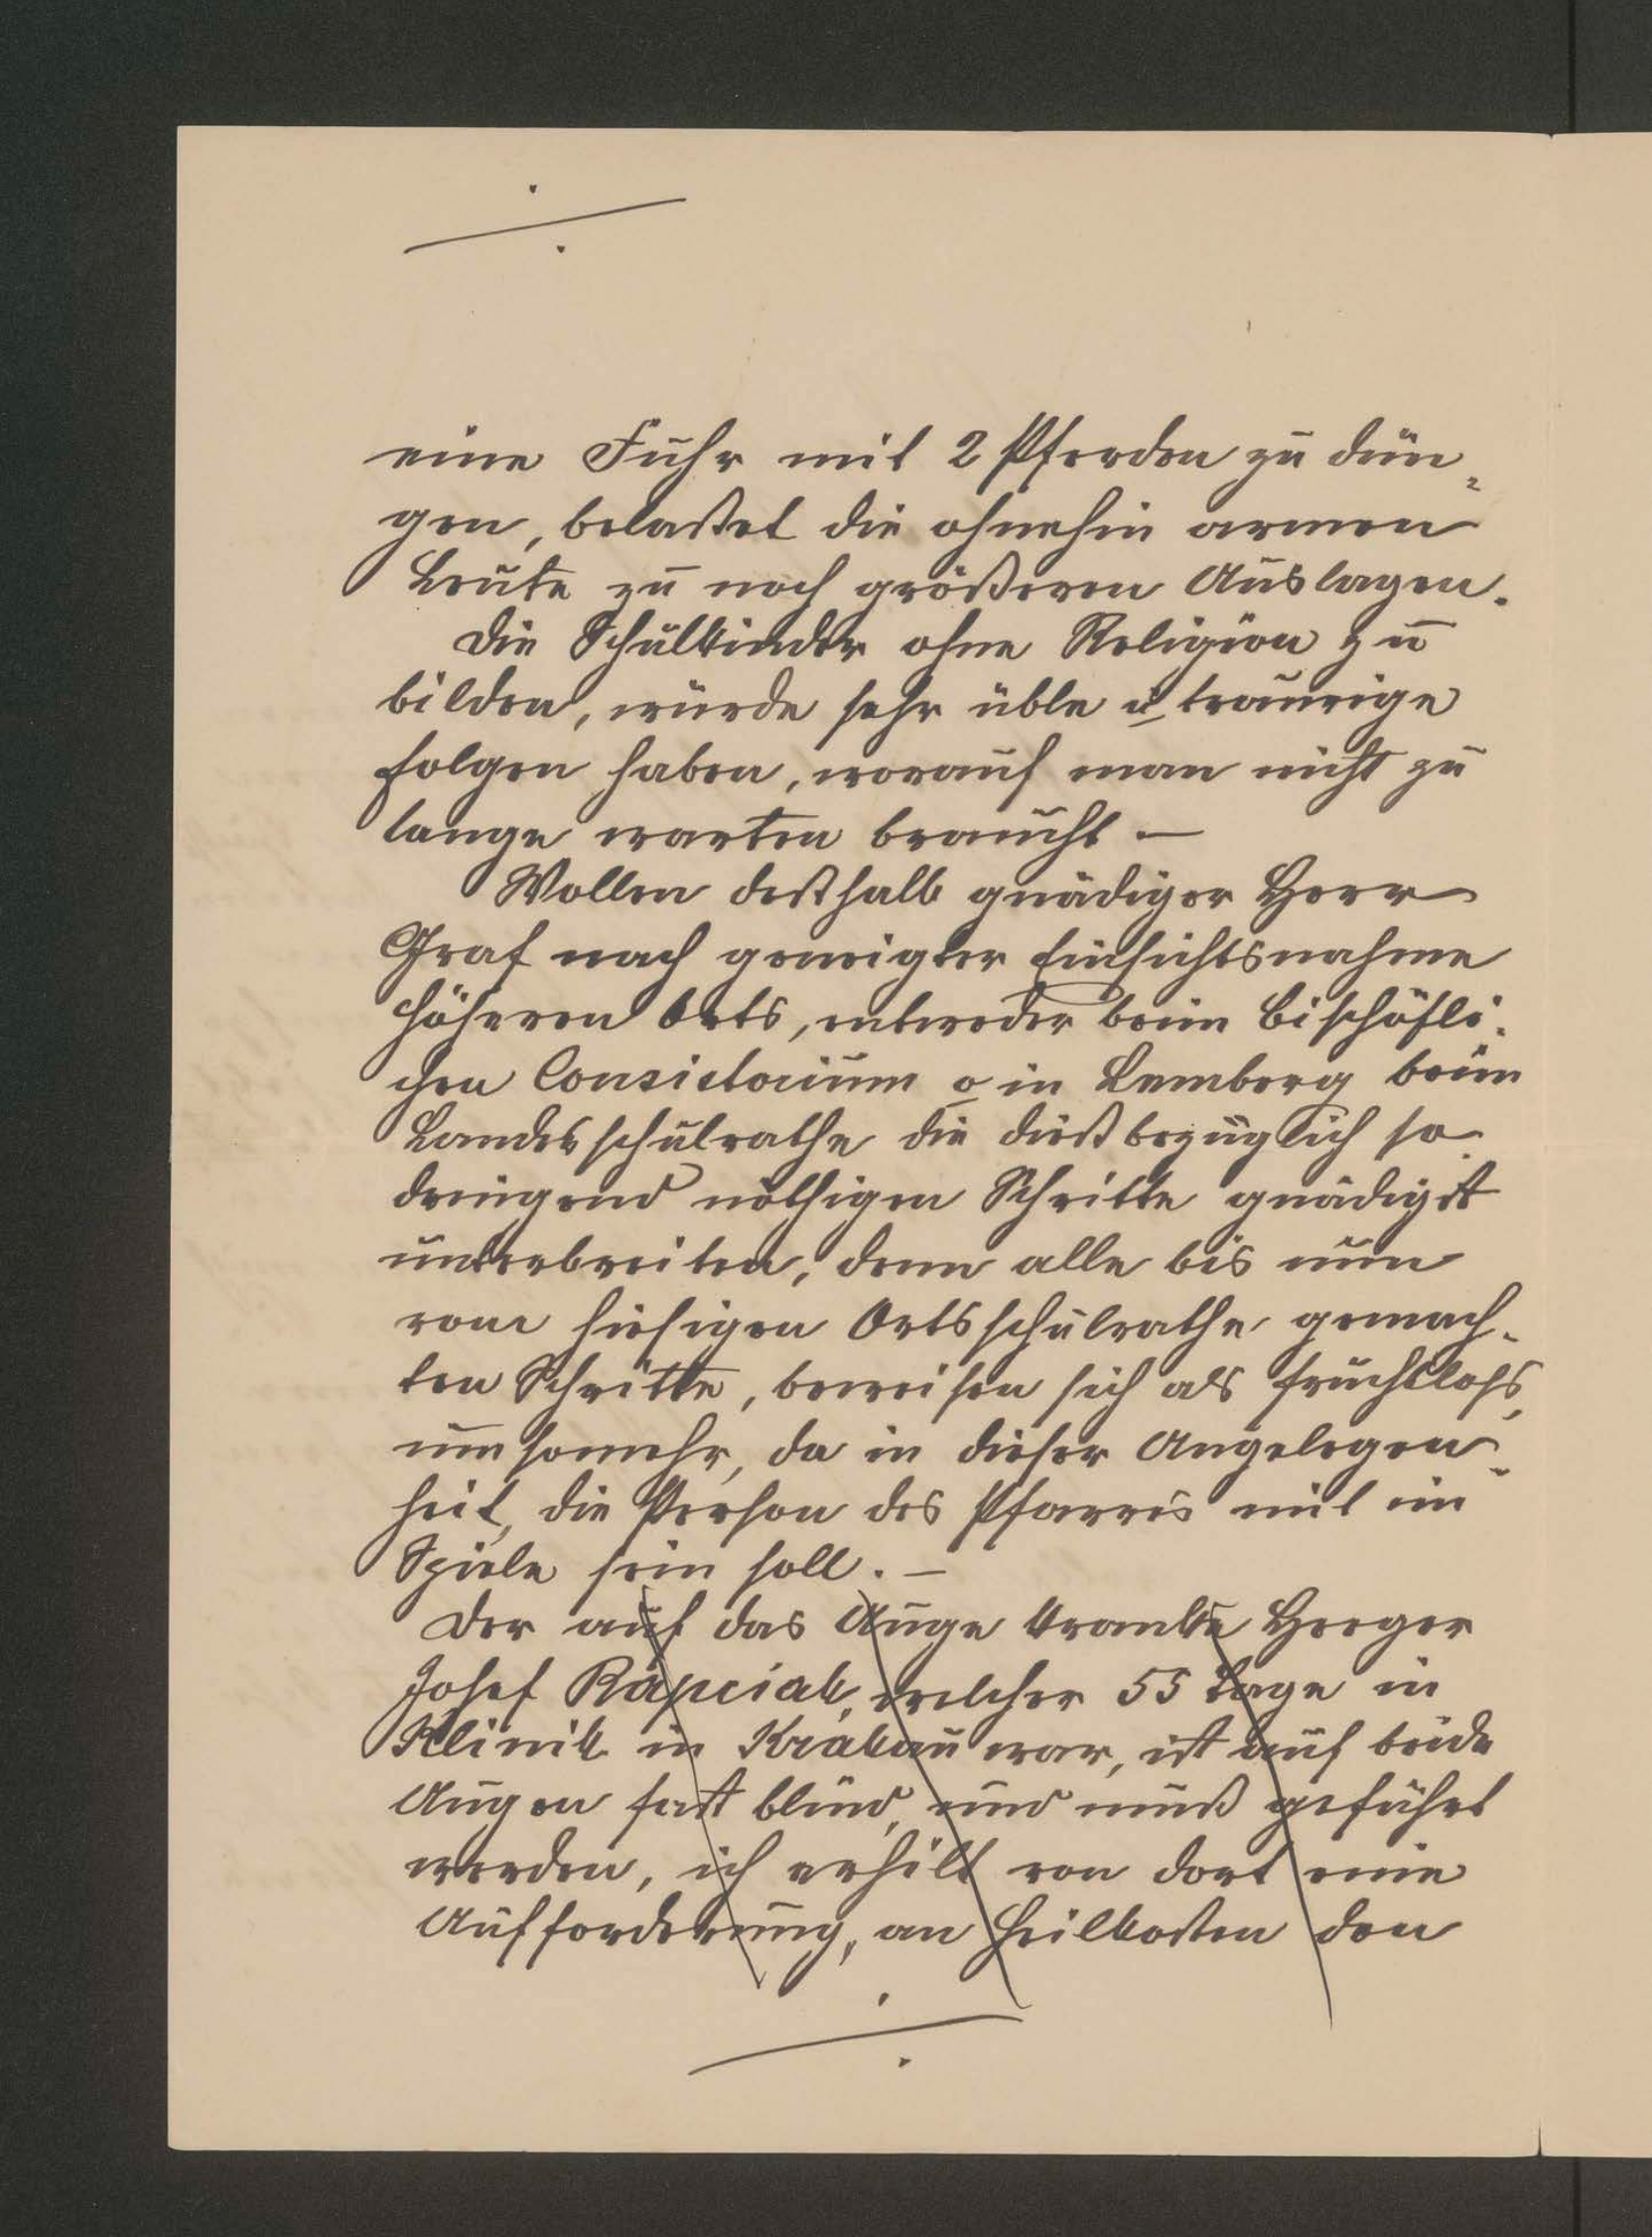 eine Fuhr mit 2 Pferden zu dün-
gen, belastet die ohnehin armen
Leute zu noch größeren Auslagen.
Die Schulkinder ohne Religion zu
bilden, würde sehr üble u traurige
Folgen haben, worauf man nicht zu
lange warten braucht. —
Wollen deßhalb gnädiger Herr
Graf nach geneigter Einsichtsnahme
höheren Orts, entweder beim bischöfli-
chen Consistorium o in Lemberg beim
Landesschulrathe die dießbezüglich so
dringend nöthigen Schritte gnädigst
unterbreiten, denn alle bis nun
vom hiesigen Ortsschulrathe gemach-
ten Schritte, beweisen sich als fruchtlohs,
umsomehr, da in dieser Angelegen-
heit, die Person des Pfarres mit im
Spiele sein soll. —
Der auf das Auge kranke Heeger
Josef Rapciak, welcher 55 Tage in
Klinik in Krakau war, ist auf beide
Augen fast blind, und muß geführt
werden, ich erhilt von dort eine
Aufforderung, an Heilkosten den